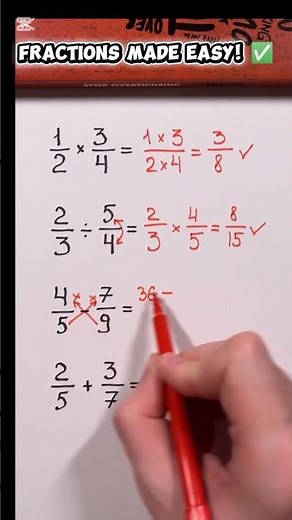 FRACTIONS MADE EASY! ✅
OVER
STOP OVERTHINKING
1/2 × 3/4 = 1 × 3/2 × 4 = 3/8 ✓
2/3 ÷ 5/4 = 2/3 × 4/5 = 8/15 ✓
4/5 - 7/9 = 36 -
2/5 + 3/7 =